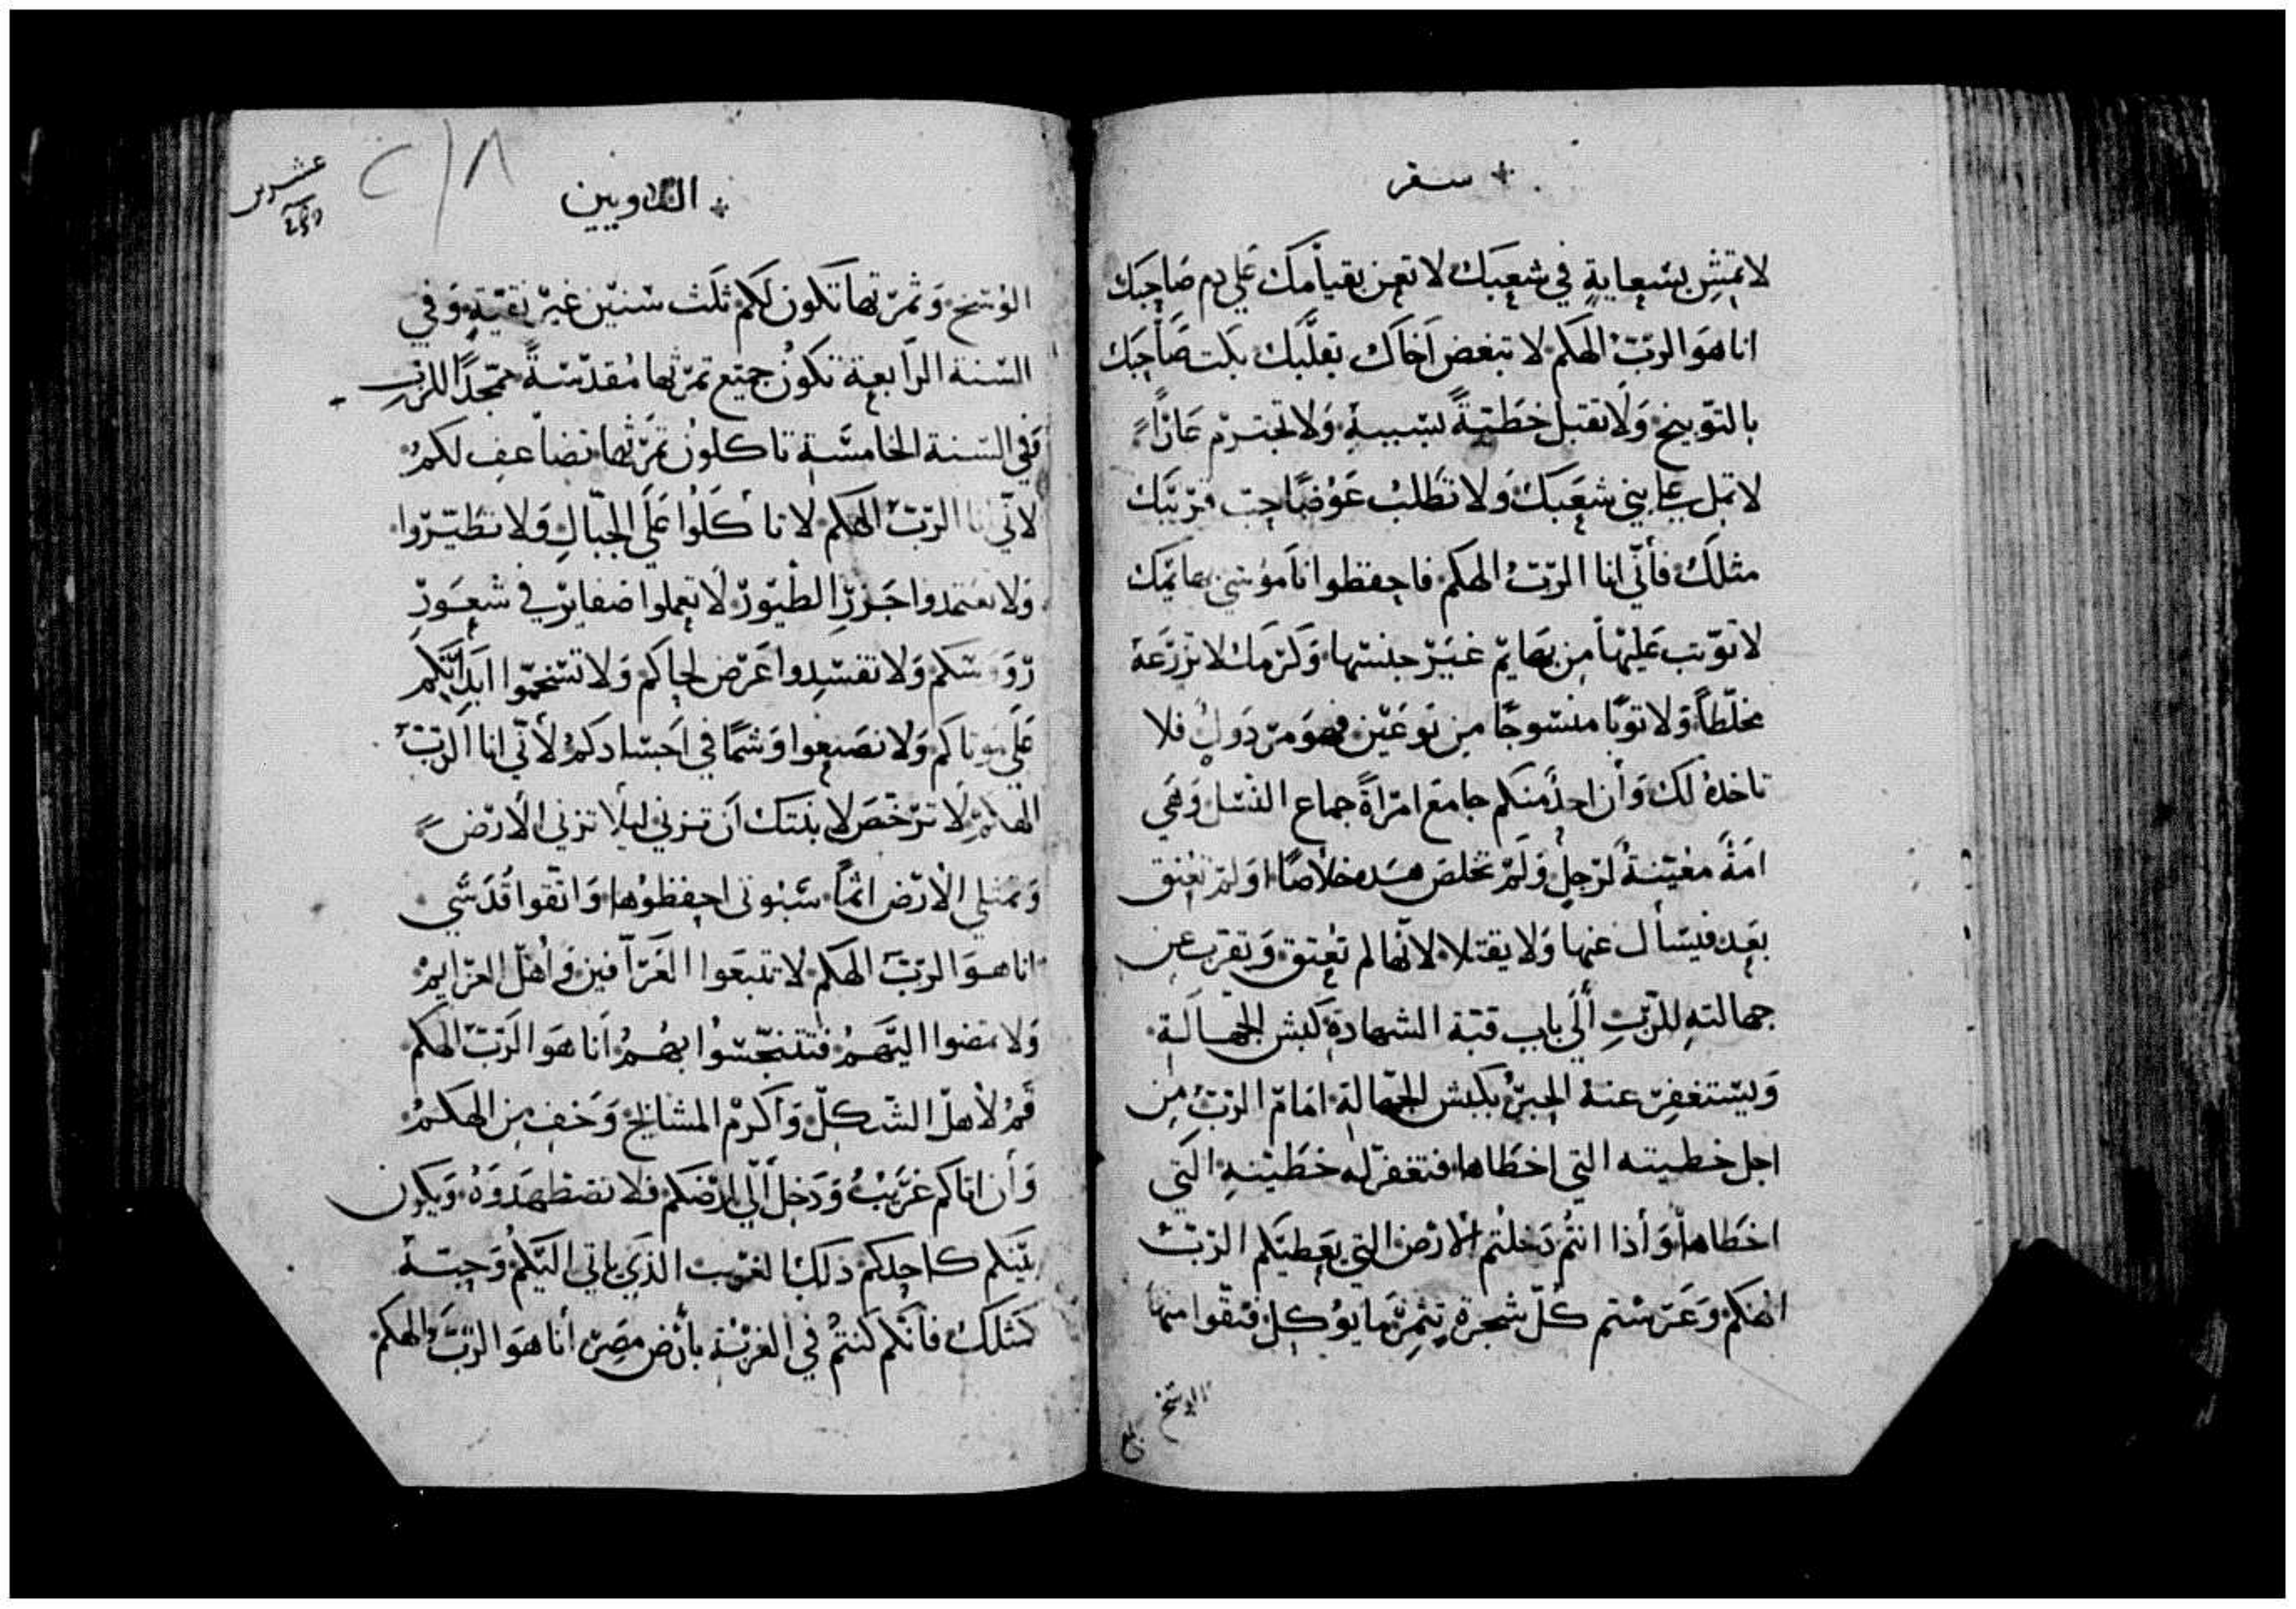 سفر
لا تمش بسعاية في شعبك لا تعن بقيامك علي دم صاحبك
انا هو الرب الهكم لا تبغض اخاك بقلبك بكت صاحبك
بالتوبيخ ولا تقبل خطية بسببه ولا تجترم عارا
لا تمل علي بني شعبك ولا تطلب عوضا حب قريبك
مثلك فأني انا الرب الهكم فاحفظوا ناموسي بهايمك
لا توثب عليها من بهايم غير جنسها وكرمك لا تزرعه
مخلطا ولا ثوبا منسوجا من نوعين فهو مردول فلا
تاخده لك وأن احد منكم جامع امرأة جماع النسل وهي
امة معينة لرجل ولم تخلص خلاصا او لم تعتق
بعد فيسأل عنها ولا يقتلا لانها لم تعتق ويقرب عن
جهالته للرب ألي باب قبة الشهادة كبش الجهالة
ويستغفر عنه الحبر بكبش الجهالة امام الرب من
اجل خطيته التي اخطاها فتغفر له خطيته التي
اخطاها وأذا انتم دخلتم الارض التي يعطيكم الرب
الهكم وغرستم كل شجرة تثمر ما يوكل فنقوا منها
الوسخ
اللاويين
عشرين
الوسخ وثمرتها تكون لكم ثلث سنين غير نقية وفي
السنة الرابعة تكون جميع ثمرتها مقدسة مجدا للرب
وفي السنة الخامسة تاكلون ثمرتها تضاعف لكم
لاني انا الرب الهكم لا تأكلوا علي الجبال ولا تطيروا
ولا تعتمدوا جزر الطيور لا تعملوا ضفاير في شعور
روسكم ولا تفسدوا عرض لحاكم ولا تسخموا ابدانكم
علي موتاكم ولا تصنعوا وشما في اجسادكم لأني انا الرب
الهكم لا ترخص لابنتك أن تزني ليلا تزني الارض
وتمتلي الارض اثما سبوتي احفظوها واتقوا قدسي
انا هو الرب الهكم لا تتبعوا العرافين واهل العزايم
ولا تمضوا اليهم فتتنجسوا بهم أنا هو الرب الهكم
قم لأهل الشكل وأكرم المشايخ وخف من الهكم
وأن اتاكم غريب ودخل ألي ارضكم فلا تضطهدوه ويكون
بينكم كاحدكم ذلك الغريب الذي ياتي اليكم وحبه
كمثلك فأنكم كنتم في الغربة بأرض مصر أنا هو الرب الهكم